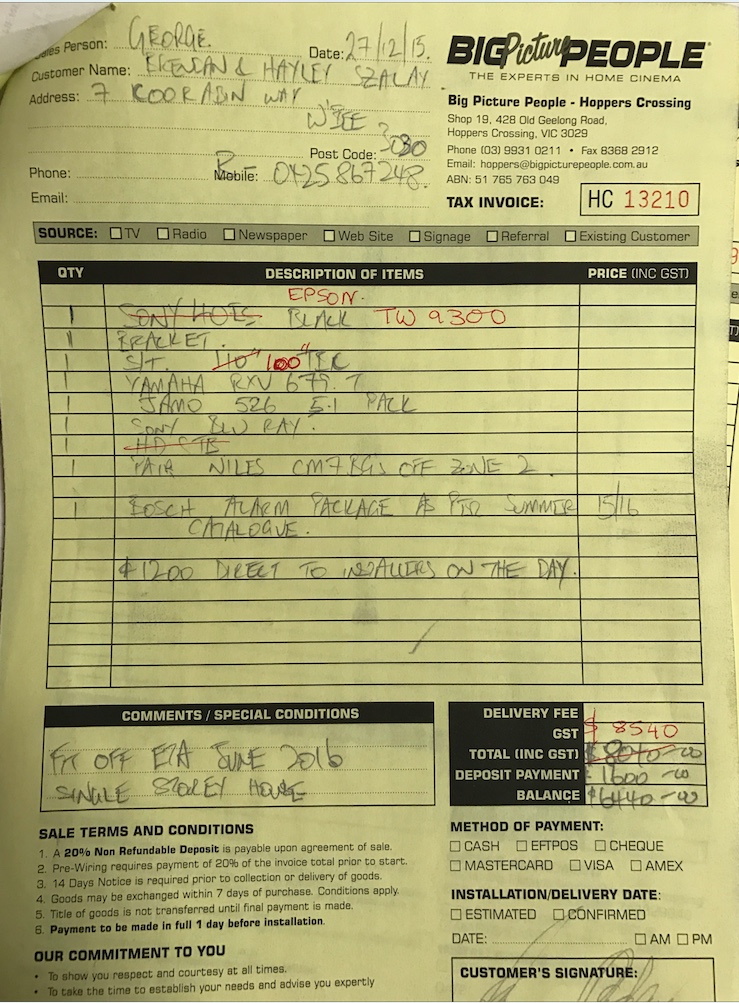 Sales Person: GEORGE. Date: 27/12/15.
Customer Name: BRENDAN & HAYLEY SZALAY.
Address: 7 KOORABIN WAY
W'BEE
Post Code: 3030
Phone: Mobile: 0425 867 248.
Email:
BIG Picture PEOPLE
THE EXPERTS IN HOME CINEMA
Big Picture People - Hoppers Crossing
Shop 19, 428 Old Geelong Road,
Hoppers Crossing, VIC 3029
Phone (03) 9931 0211 • Fax 8368 2912
Email: hoppers@bigpicturepeople.com.au
ABN: 51 765 763 049
TAX INVOICE: HC 13210
SOURCE: TV Radio Newspaper Web Site Signage Referral Existing Customer
QTY DESCRIPTION OF ITEMS PRICE (INC GST)
EPSON.
1 SONY BLACK TW 9300
1 BRACKET.
1 S/T. 110" 100"
1 YAMAHA RXV 679. 7
1 JAMO 526 5.1 PACK
1 SONY BLU RAY.
1 HD STB
1 PAIR NILES CM7 BGS OFF ZONE 2.
1 BOSCH ALARM PACKAGE AS PER SUMMER 15/16
CATALOGUE.
$1200 DIRECT TO INSTALLERS ON THE DAY.
COMMENTS / SPECIAL CONDITIONS
FIT OFF ETA JUNE 2016
SINGLE STOREY HOUSE
DELIVERY FEE
GST $ 8540
TOTAL (INC GST) $8040-00
DEPOSIT PAYMENT 1600-00
BALANCE $6440-00
SALE TERMS AND CONDITIONS
1. A 20% Non Refundable Deposit is payable upon agreement of sale.
2. Pre-Wiring requires payment of 20% of the invoice total prior to start.
3. 14 Days Notice is required prior to collection or delivery of goods.
4. Goods may be exchanged within 7 days of purchase. Conditions apply.
5. Title of goods is not transferred until final payment is made.
6. Payment to be made in full 1 day before installation.
OUR COMMITMENT TO YOU
• To show you respect and courtesy at all times.
• To take the time to establish your needs and advise you expertly
METHOD OF PAYMENT:
CASH EFTPOS CHEQUE
MASTERCARD VISA AMEX
INSTALLATION/DELIVERY DATE:
ESTIMATED CONFIRMED
DATE: AM PM
CUSTOMER'S SIGNATURE: